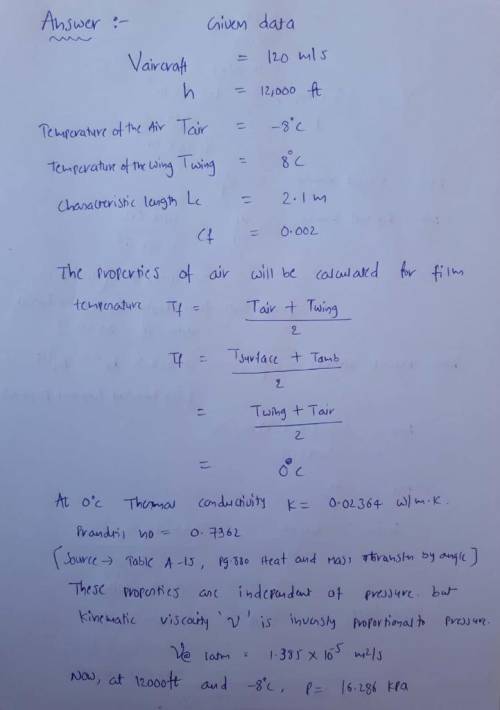 Answer :- Given data
Vaircraft = 120 m/s
h = 12,000 ft
Temperature of the Air Tair = -8°C
Temperature of the Wing Twing = 8°C
Characteristic length Lc = 2.1 m
Cf = 0.002
The properties of air will be calculated for film
temperature Tf = Tair + Twing / 2
Tf = Tsurface + Tamb / 2
= Twing + Tair / 2
= 0°C
At 0°C Thermal conductivity K = 0.02364 W/m.K.
Prandtl no = 0.7362
[Source → Table A-15, pg. 880 Heat and Mass transfer by]
These properties are independent of pressure. but
kinematic viscosity 'ν' is inversly proportional to pressure.
ν@ 1atm = 1.385 × 10⁻⁵ m²/s
Now, at 12000ft and -8°C, P = 16.286 kPa